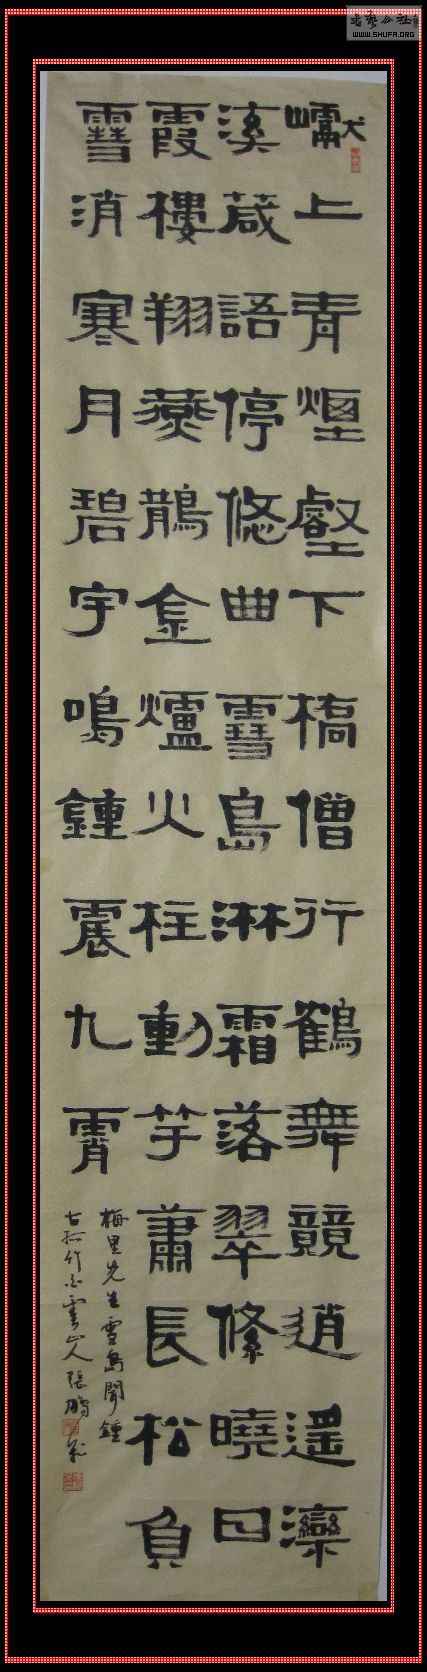 书艺公社
WWW.SHUFA.ORG
巘上青煙壑下橋僧行鶴舞競逍遙灤
溪葴語停悠曲雪島淋霜落翠絛曉日
霞樓翔燕鵲金爐火柱動竽蕭長松負
雪消寒月碧宇鳴鍾震九霄
梅里先生雪島聞鍾
古孤竹白雲山人張鵬